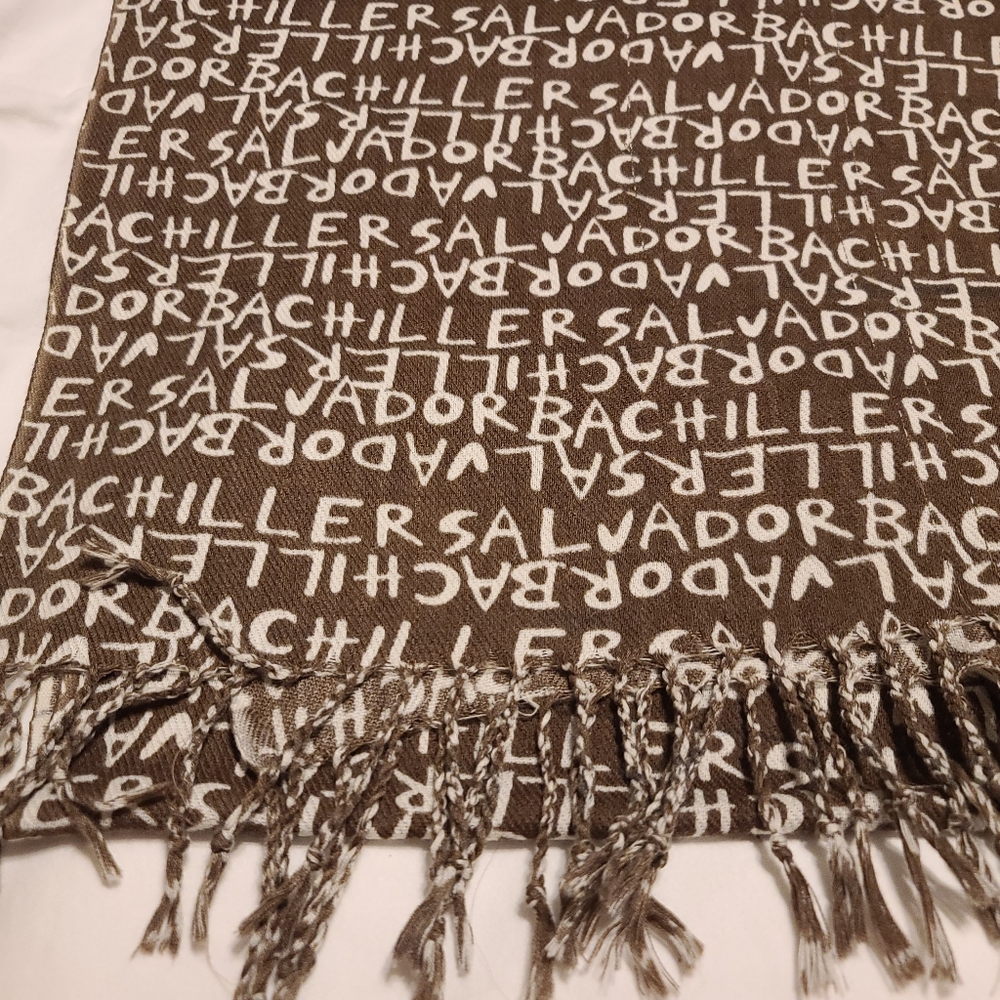 BACHILLERSALVADORBACHILL
LERSALVADORBACHILLERSAL
ADORBACHILLERSALVADORBAC
SALVADORBACHILLERSALVAD
ERSALVADORBACHILLERSAL
BACHILLERSALVADORBACHIL
BACHILLERSALVADORBACHILL
ERSALVADORBACHILLERSA
DORBACHILLERSALVADORB
ALVADORBACHILLERSALVAD
ERSALVADORBACHILLERS
CHILLERSALVADORBACHIL
BACHILLERSALVADORBAC
SALVADORBACHILLERSA
DORBACHILLERSAL